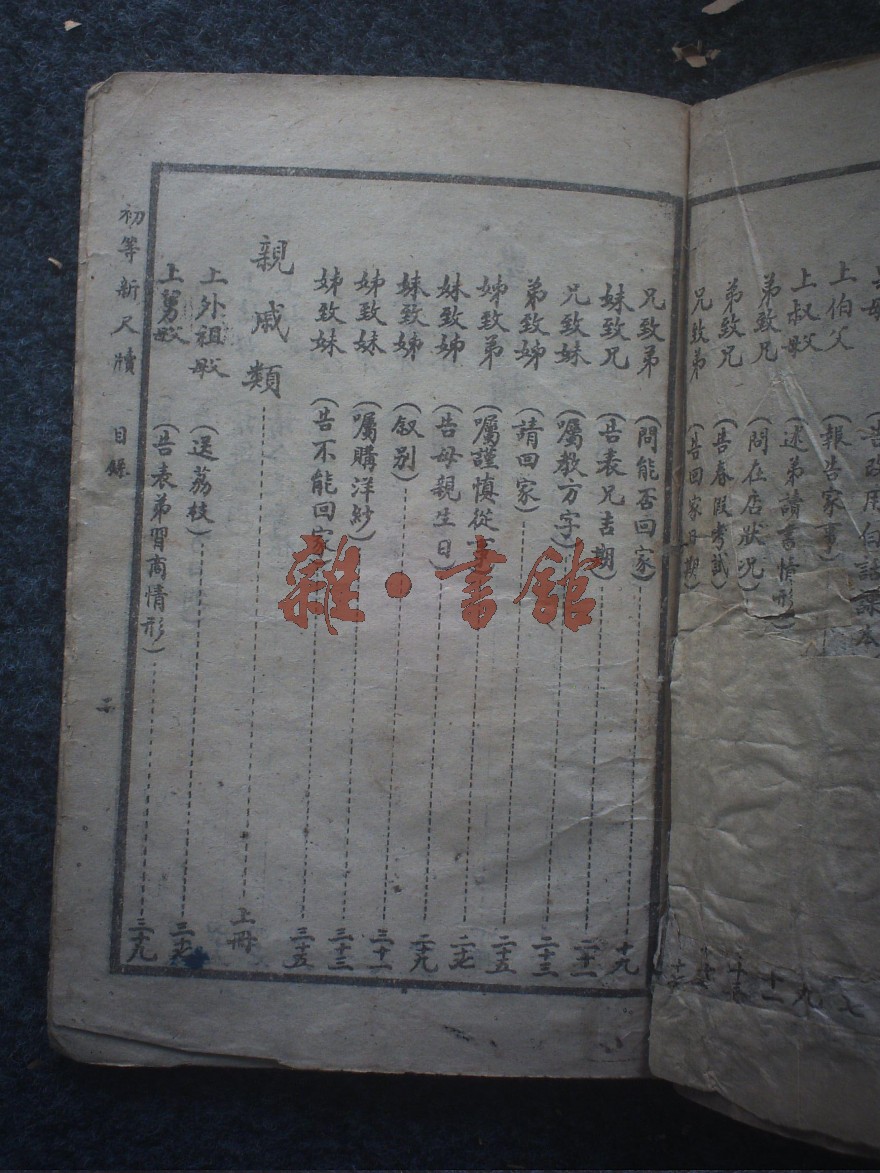 上伯父 (報告家事) 七
上叔父母 (述弟讀書情形) 九
弟致兄 (問在店狀況) 十一
弟致兄 (告春假考試)
兄致弟 (告回家日期)
兄致弟 (問能否回家)
妹致兄 (告表兄吉期) 十九
兄致妹 (囑教方字) 二十一
弟致姊 (請回家) 二十三
姊致弟 (囑謹慎從事) 二十五
妹致姊 (告母親生日) 二十七
妹致姊 (叙别) 二十九
姊致妹 (囑購洋紗) 三十一
姊致妹 (告不能回家) 三十三
三十五
親戚類 上冊
上外祖父母 (送荔枝) 三十七
上舅父母 (告表弟習商情形) 三十九
初等新尺牘 目錄 二
雜·書館